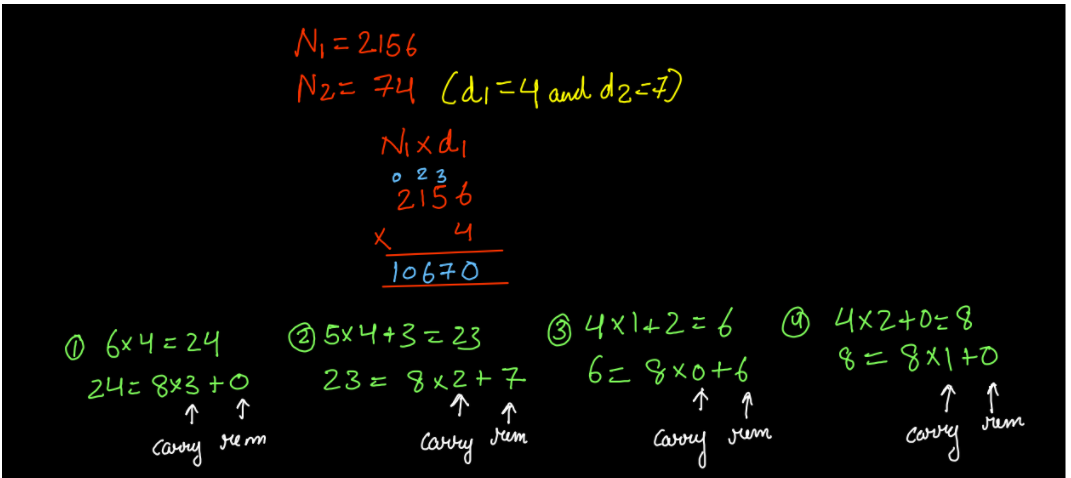 N₁ = 2156
N₂ = 74 (d₁ = 4 and d₂ = 7)
N₁ × d₁
0 2 3
2156
× 4
10670
① 6×4 = 24
24 = 8×3 + 0
carry rem
② 5×4+3 = 23
23 = 8×2 + 7
carry rem
③ 4×1+2 = 6
6 = 8×0+6
carry rem
④ 4×2+0=8
8 = 8×1+0
carry rem